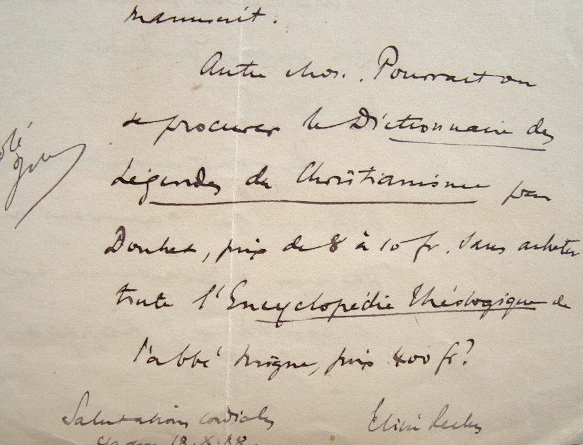 manuscrit.
Autre chose. Pourrait on
se procurer le Dictionnaire des
Légendes du Christianisme par
Douhet, prix de 8 à 10 fr. sans acheter
toute l'Encyclopédie théologique de
l'abbé Migne, prix 400 fr?
Salutations cordiales